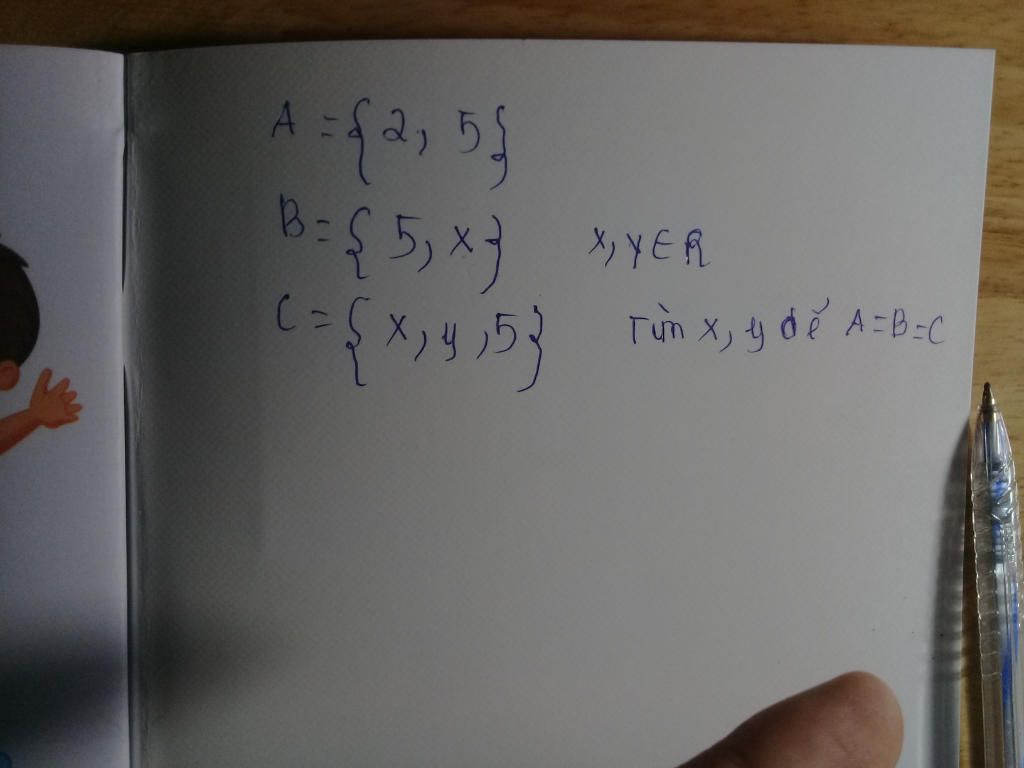 A = {2, 5}
B = {5, x} x, y ∈ R
C = {x, y, 5} Tìm x, y để A = B = C